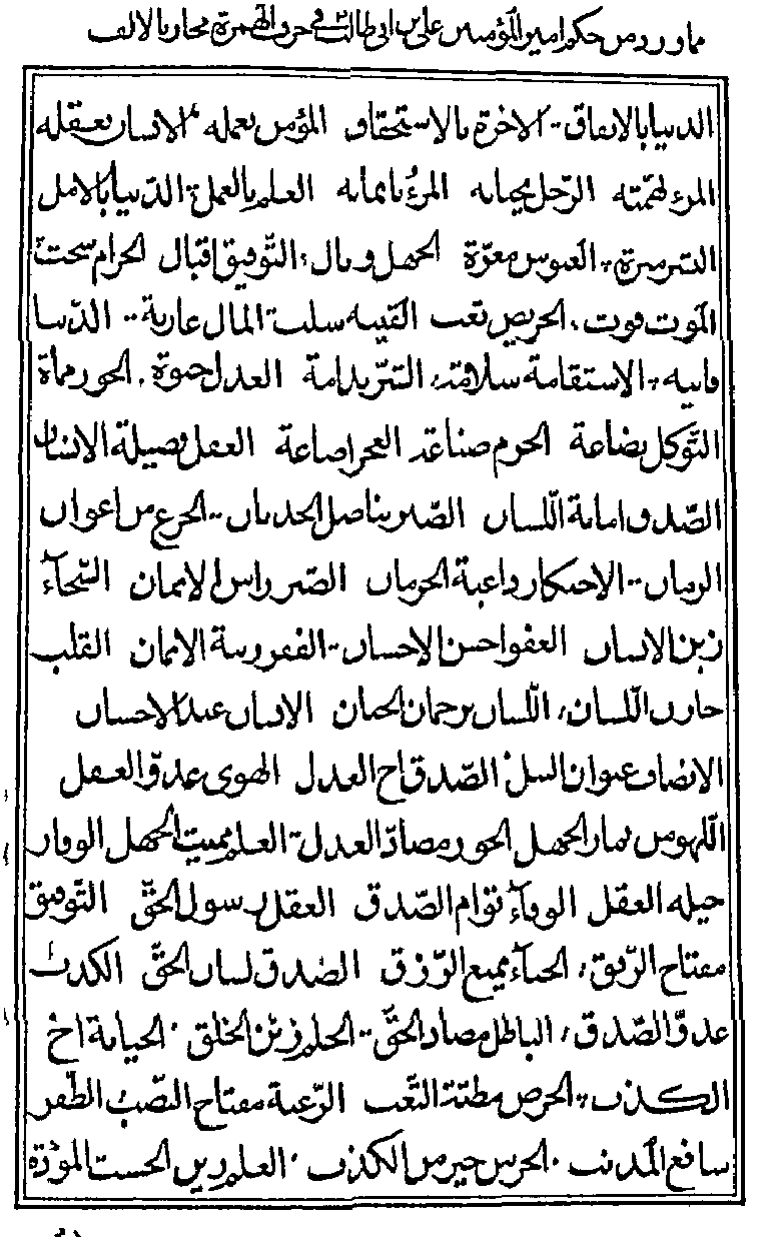 مما ورد من حكم امير المؤمنين علي بن ابي طالب في حرف الهمزة مما جاء بالالف
الدنيا بالاتفاق الاخرة بالاستحقاق المؤمن بعمله الانسان بعقله
المرء بهمّته الرّجل بجنانه المرءُ بايمانه العلم بالعمل الدّنيا بالامل
العبوس معرّة الجهل وبال التّوفيق اقبال الحرام سحت
الموت فوت الحريص تعب القنية سلب المال عارية الدّنيا
فانيه الاستقامة سلامة الشّرّ ندامة العدل حيوة الجور مماة
التّوكل بضاعة الحزم صناعة العجز اضاعة العقل فضيلة الانسان
الصّدق امانة اللّسان الصّبر يناضل الحدثان الجزع من اعوان
الزمان الاحتكار داعية الحرمان الصّبر راس الايمان السّخآء
زين الانسان العفو احسن الاحسان الفقر زينة الايمان القلب
خازن اللّسان اللّسان ترجمان الجنان الانسان عبد الاحسان
الانصاف عنوان النبل الصّدق اخ العدل الهوى عدوّ العقل
اللّهو من ثمار الجهل الجور مضادّ العدل العلم مميت الجهل الوقار
حيله العقل الوفآء توام الصّدق العقل رسول الحقّ التّوفيق
مفتاح الرّفق الحيآء يمنع الرّزق الصّدق لسان الحقّ الكذب
عدوّ الصّدق الباطل مضاد الحقّ الحلم زين الخلق الخيانة اخ
الكذب الحرص مطيّة التّعب الرّغبة مفتاح النّصب الظّفر
شافع المذنب الخرس خير من الكذب العلم زين الحسب المودّة